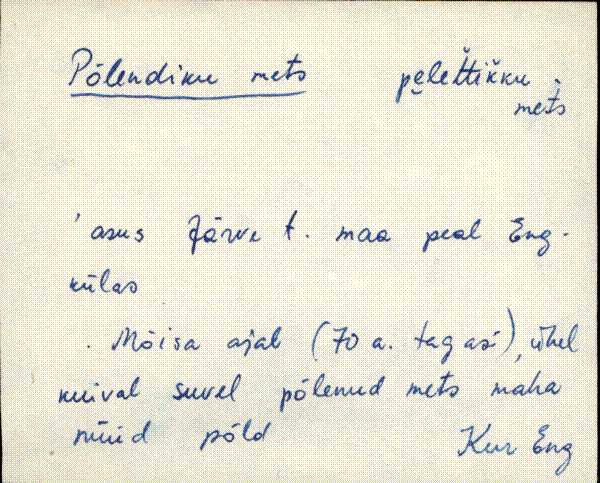 Põlendiku mets pe̮leťtikku
meťs
asus Järve t. maa peal Eng-
külas
Mõisa ajal (70 a. tagasi), ühel
kuival suvel põlenud mets maha
nüüd põld Kur Eng